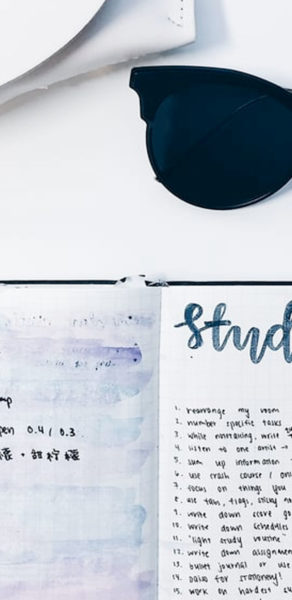 mp
pen 0.4 / 0.3
Stud
1. rearrange my room
2. number specific tasks
3. while notetaking, write
4. listen to one artist →
5. sum up information
6. use crash course / onl
7. focus on things you
8. use tabs, flags, sticky no
9. write down score go
10. write down schedules
11. "light study routine"
12. write down assignmen
13. bullet journal or use
14. for stationery!
15. work on hardest su